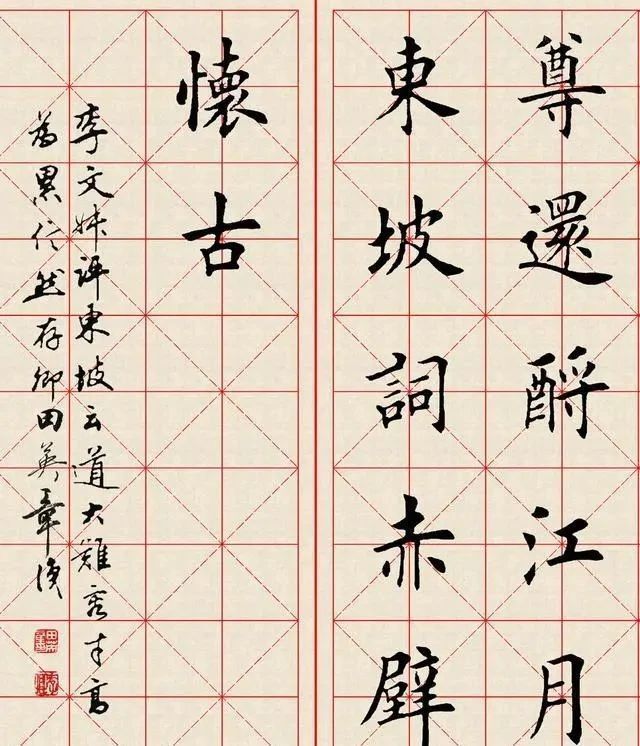 尊還酹江月
東坡詞赤壁
懷古
李文評東坡云道大難容才高
為累信然存卿田英章